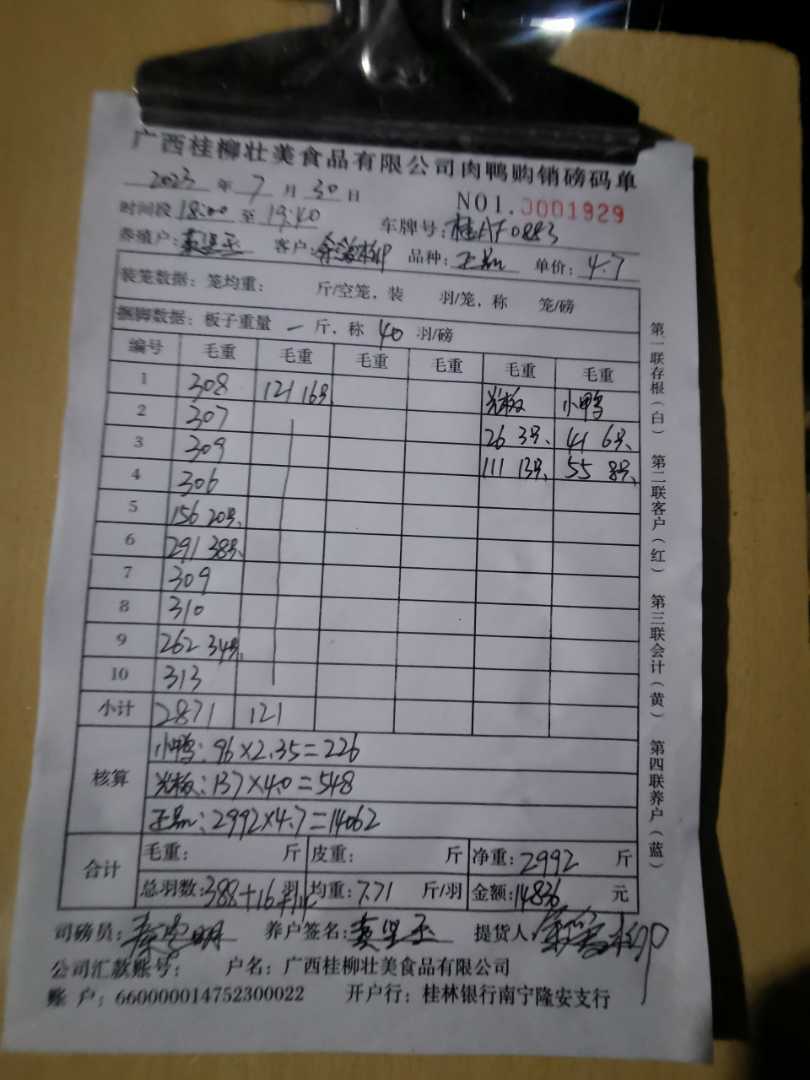 广西桂柳壮美食品有限公司肉鸭购销磅码单
2023 年 7 月 30 日 NO1.0001929
时间段 18:00 至 19:40 车牌号: 桂AF0883
养殖户: 客户: 品种: 正品 单价: 4.7
装笼数据: 笼均重: 斤/空笼, 装 羽/笼, 称 笼/磅
捆脚数据: 板子重量 一 斤, 称 40 羽/磅
编号 毛重 毛重 毛重 毛重 毛重 毛重
1 308 121 16只 光板 小鸭
2 307 26 3只 41 6只
3 309 111 13只 55 8只
4 306
5 156 20只
6 291 38只
7 309
8 310
9 262 34只
10 313
小计 2871 121
核算 小鸭: 96×2.35=226
光板: 137×4.0=548
正品: 2992×4.7=14062
合计 毛重: 斤 皮重: 斤 净重: 2992 斤
总羽数: 388+16 均重: 7.71 斤/羽 金额: 14836 元
司磅员: 养户签名: 提货人:
公司汇款账号: 户名: 广西桂柳壮美食品有限公司
账 户: 660000014752300022 开户行: 桂林银行南宁隆安支行
第一联存根(白) 第二联客户(红) 第三联会计(黄) 第四联养户(蓝)